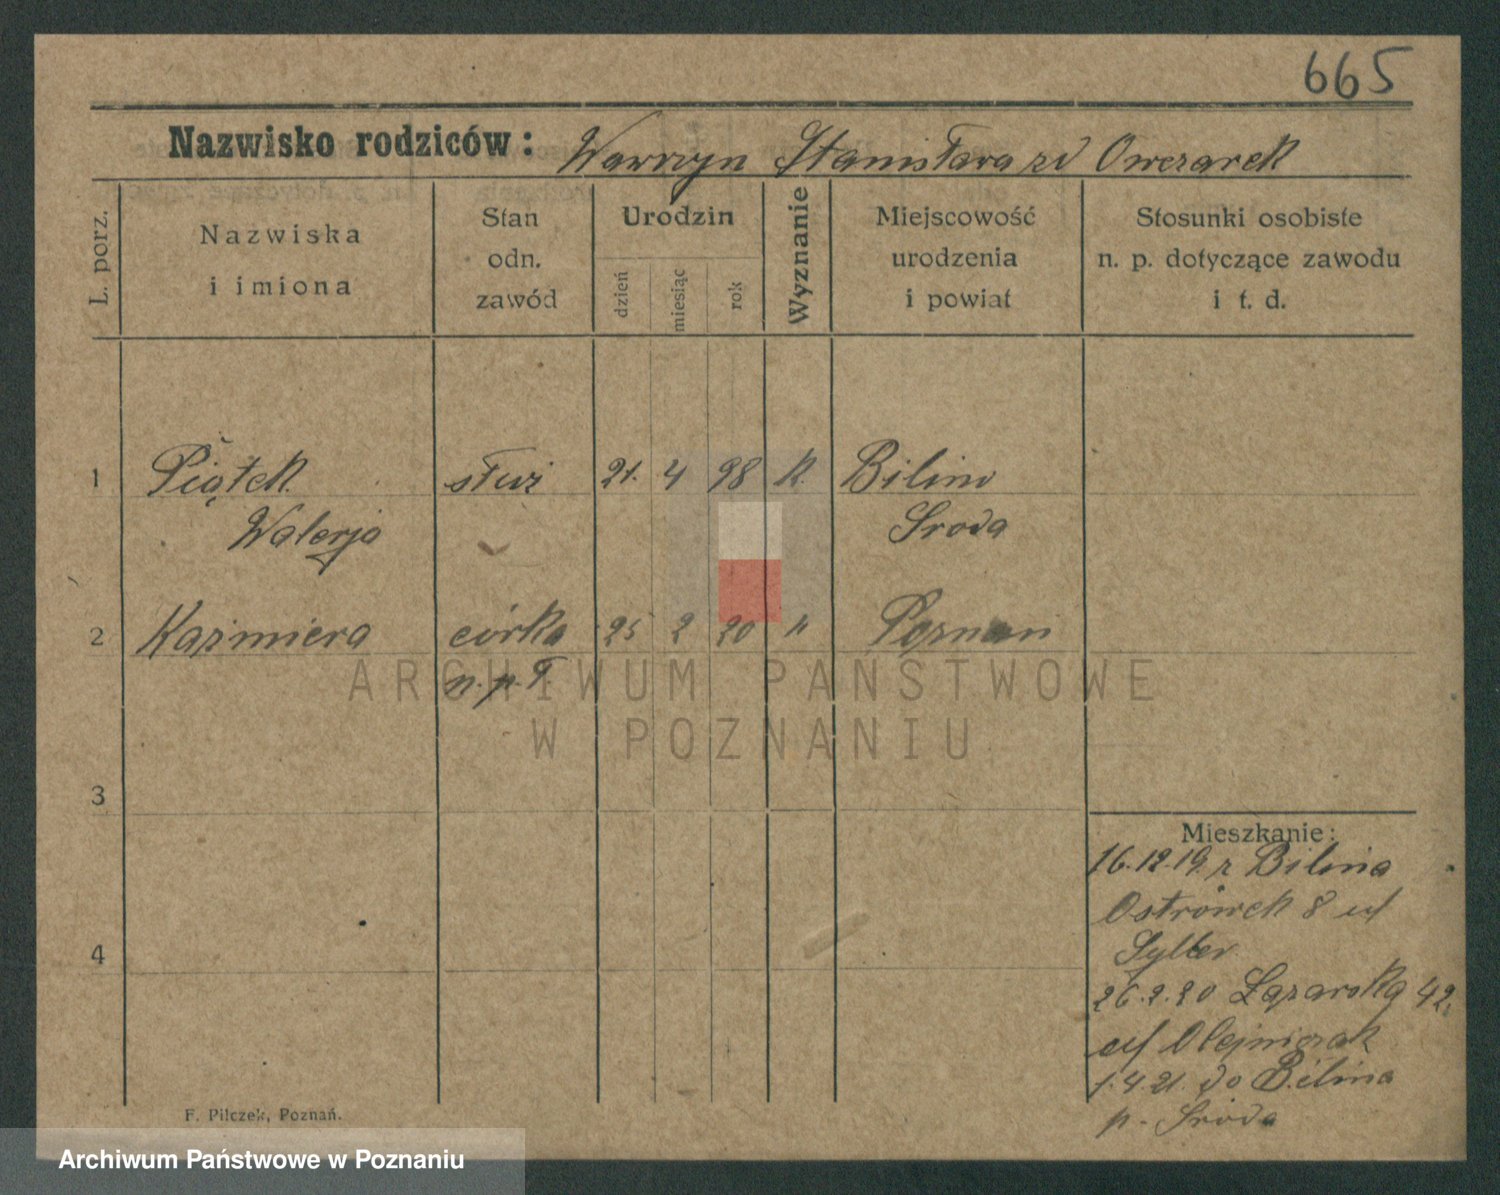 665
Nazwisko rodziców: Wawrzyn Stanisława zd Owczarek
L. porz.
Nazwiska
i imiona
Stan
odn.
zawód
Urodzin
dzień
miesiąc
rok
Wyznanie
Miejscowość
urodzenia
i powiat
Stosunki osobiste
n. p. dotyczące zawodu
i t. d.
1 Piątek służ 21. 4 98 k. Bilino
Walerja Sroda
2 Kazimiera córka 25 2 20 " Poznań
n. p. T.
3
4
Mieszkanie:
16.12.19. z Bilina
Ostrówek 8 u/
26.2.20 Łazarska 42.
u/ Olejniczak
1.4 21. do Bilina
p. Sroda
F. Pilczek, Poznań.
ARCHIWUM PAŃSTWOWE
W POZNANIU
Archiwum Państwowe w Poznaniu